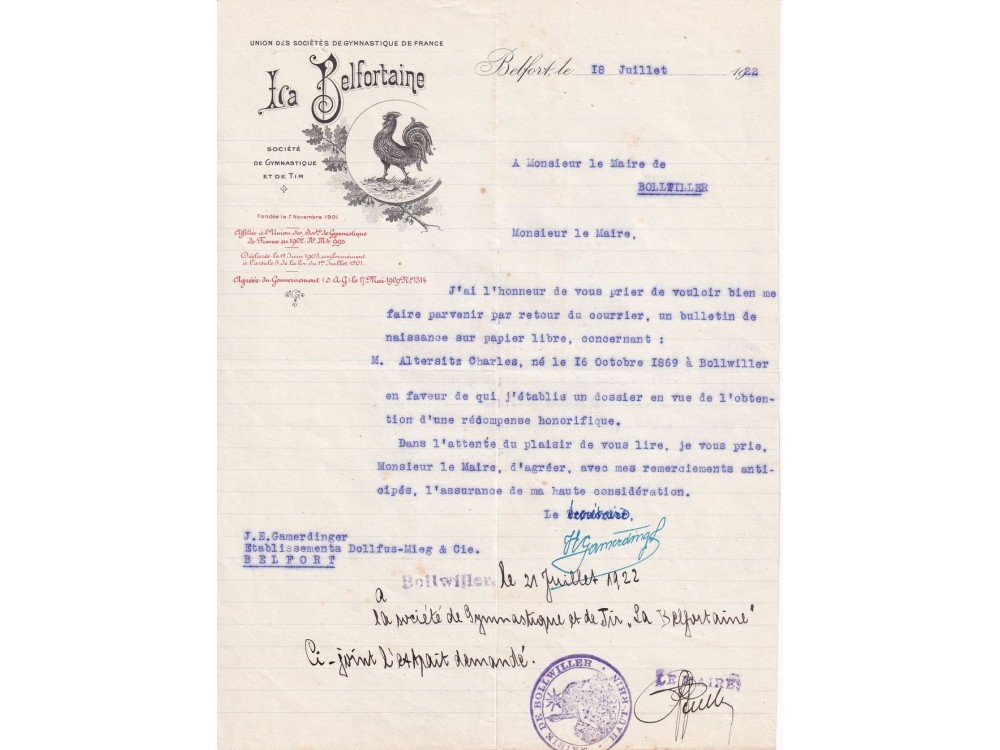 UNION DES SOCIÉTÉS DE GYMNASTIQUE DE FRANCE
La Belfortaine
SOCIÉTÉ
DE GYMNASTIQUE
ET DE TIR
Fondée le 7 Novembre 1901
Affiliée à l'Union des Soc.tés de Gymnastique
de France en 1902. No Mle 995
Déclarée le 12 Juin 1903, conformément
à l'article 5 de la loi du 1er Juillet 1901.
Agréée du Gouvernement (S.A.G) le 17 Mai 1909 No 1314
Belfort, le 18 Juillet 1922
A Monsieur le Maire de
BOLLWILLER
Monsieur le Maire,
J'ai l'honneur de vous prier de vouloir bien me
faire parvenir par retour du courrier, un bulletin de
naissance sur papier libre, concernant :
M. Altersitz Charles, né le I6 Octobre I869 à Bollwiller
en faveur de qui j'établis un dossier en vue de l'obten-
tion d'une récompense honorifique.
Dans l'attente du plaisir de vous lire, je vous prie,
Monsieur le Maire, d'agréer, avec mes remerciements anti-
cipés, l'assurance de ma haute considération.
Le
Gamerdinger
J.E.Gamerdinger
Etablissements Dollfus-Mieg & Cie.
BELFORT
Bollwiller, le 21 Juillet 1922
A
la société de Gymnastique et de Tir „La Belfortaine"
Ci-joint l'extrait demandé.
MAIRIE DE BOLLWILLER • HAUT-RHIN
LE MAIRE